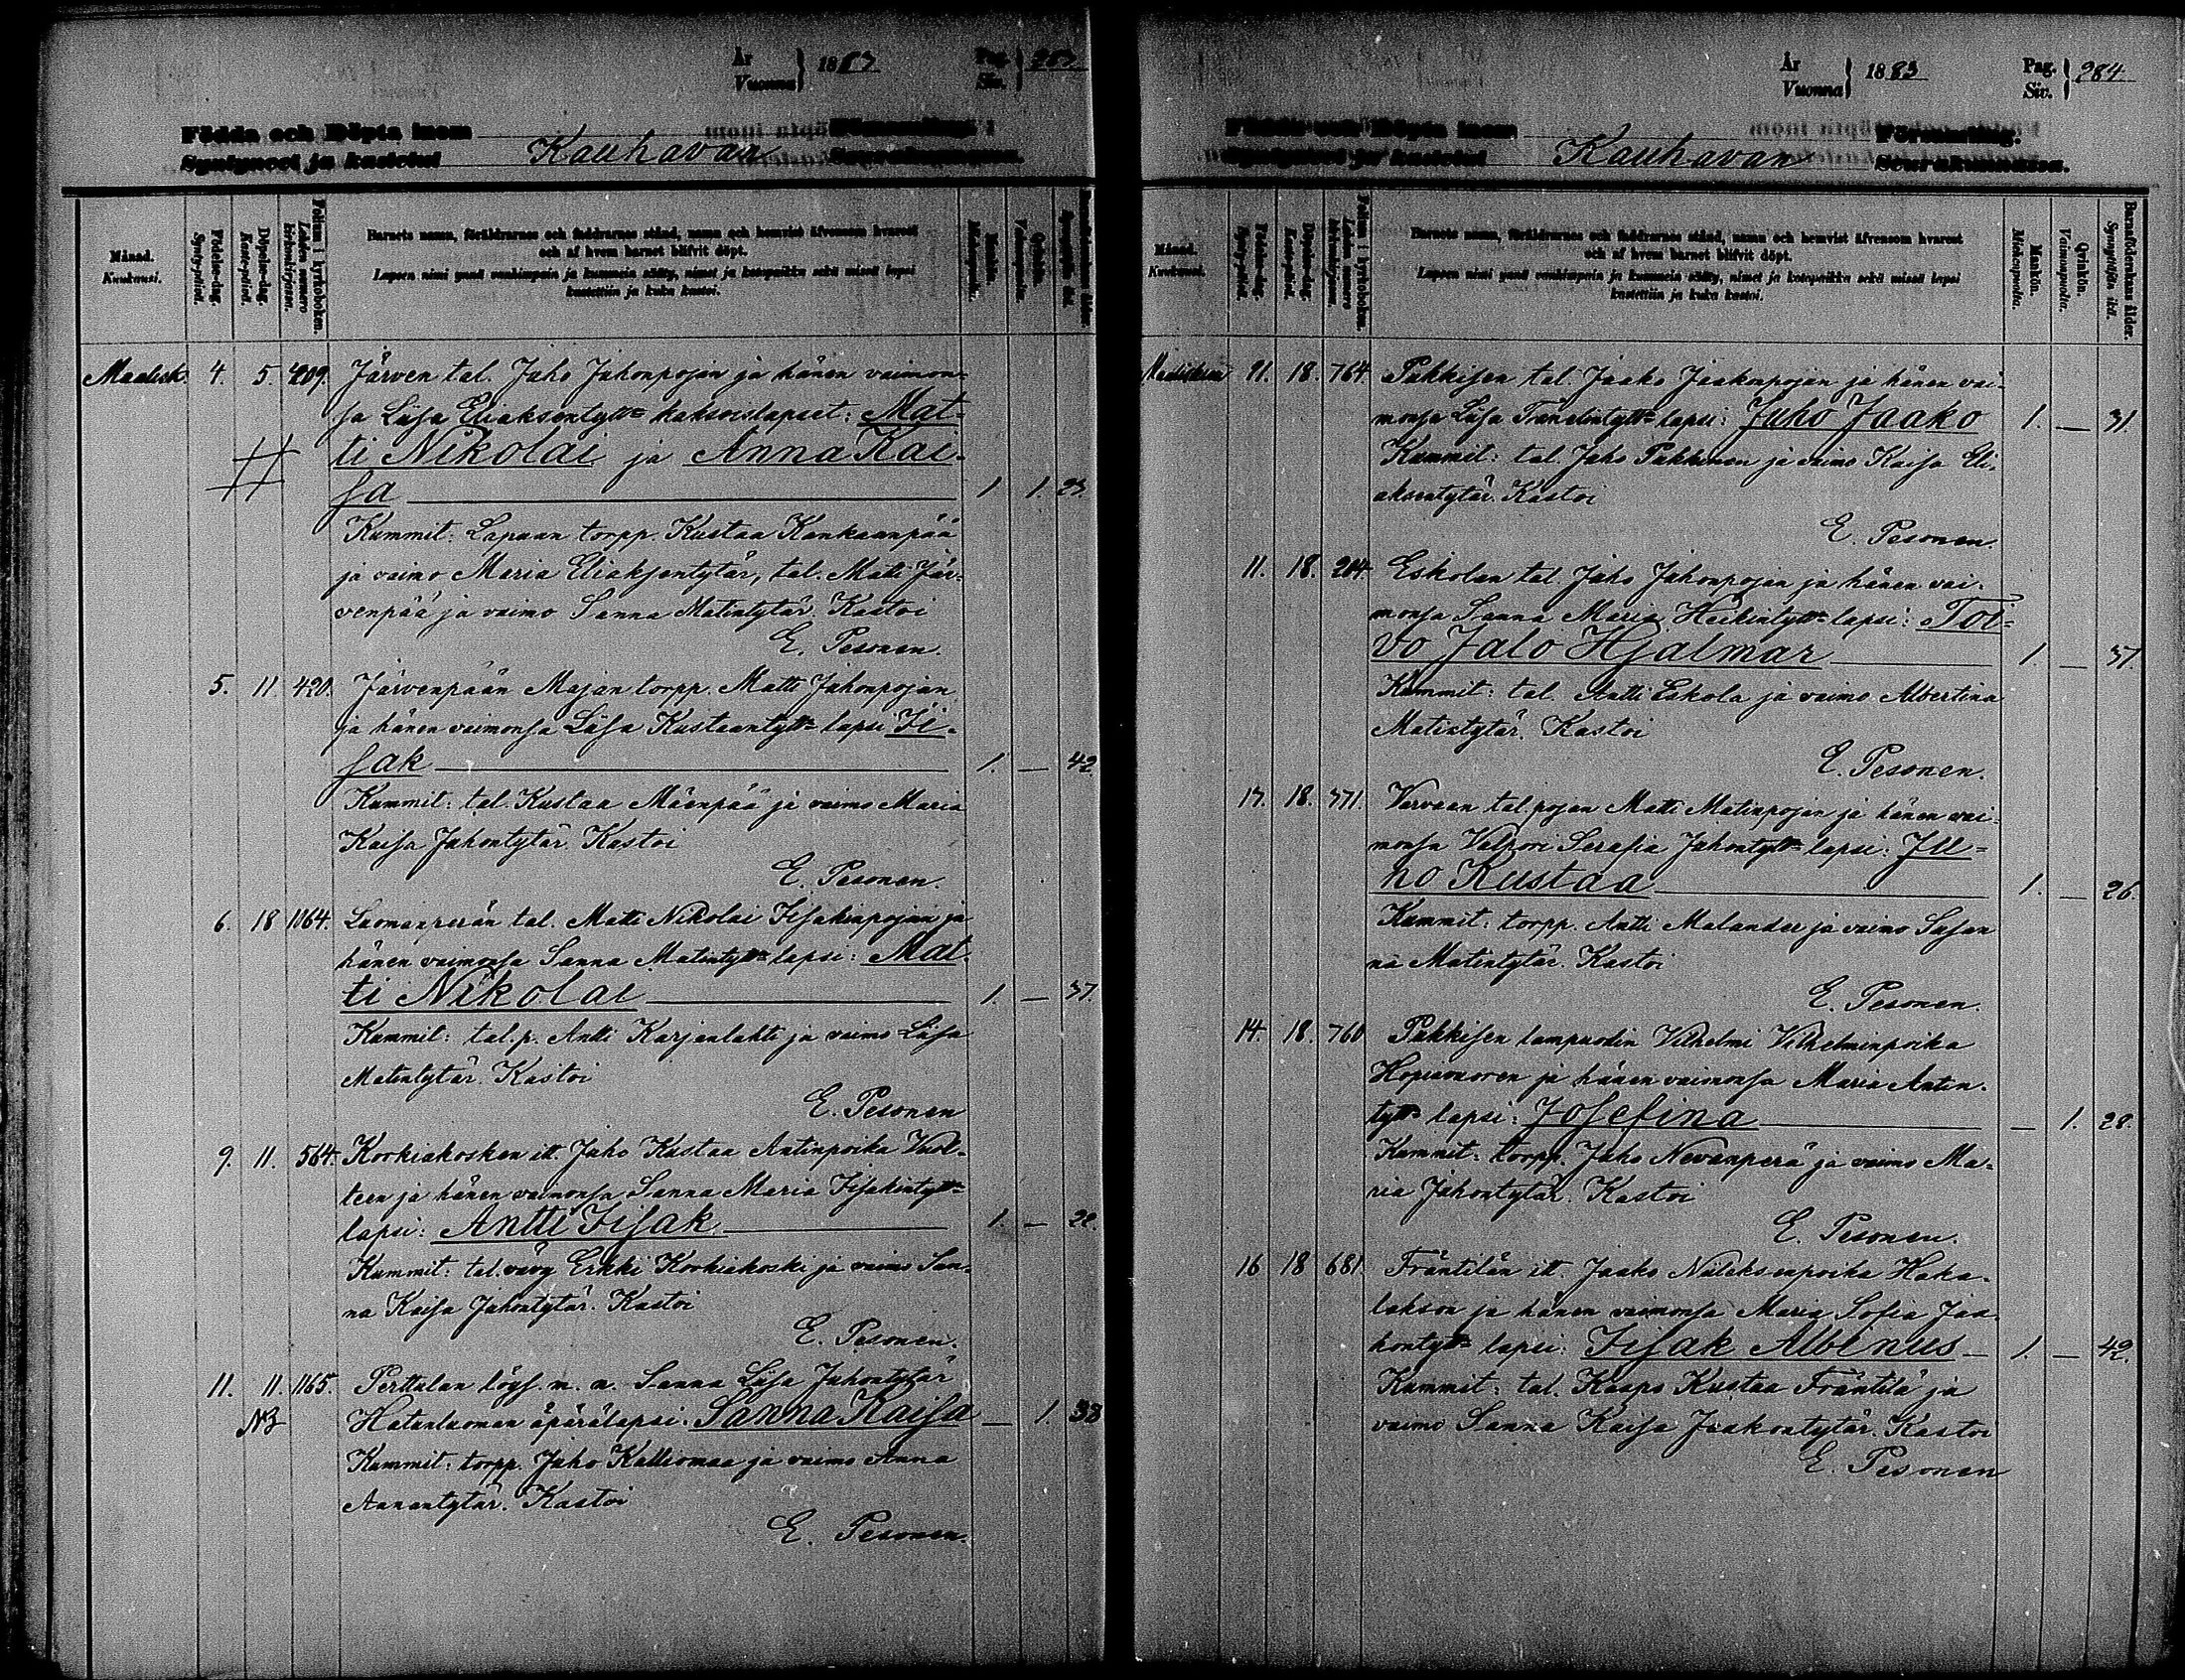 År
Vuonna } 1883
Pag.
Siv. } 283
Födda och Döpta inom
Syntyneet ja kastetut Kauhavan Församling.
Seurakunnassa.
Månad.
Kuukausi.
Födelse-dag.
Synty-päivä.
Döpelse-dag.
Kaste-päivä.
Folium i kyrkoboken.
Lehden numero
kirkonkirjassa.
Barnets namn, föräldrarnes och faddrarnes stånd, namn och hemvist äfvensom hvarest
och af hvem barnet blifvit döpt.
Lapsen nimi ynnä vanhimpain ja kummein sääty, nimet ja kotopaikka sekä missä lapsi
kastettiin ja kuka kastoi.
Mankön.
Miehenpuolta.
Qvinkön.
Vaimonpuolta.
Barnaföderskans ålder.
Synnyttäjän ikä.
Maalisk. 4. 5. 209. Järven tal. Juho Juhonpojan ja hänen vaimon-
sa Liisa Eliaksentytt= kaksoislapset: Mat-
ti Nikolai ja Anna Kai-
sa 1 1. 23.
Kummit: Lapuan torpp. Kustaa Kankaanpää
ja vaimo Maria Eliaksentytär, tal. Matti Jär-
venpää ja vaimo Sanna Matintytär. Kastoi
E. Pesonen.
5. 11 420. Järvenpään Majan torpp. Matti Juhonpojan
ja hänen vaimonsa Liisa Kustaantytt= lapsi Ii-
sak 1. — 42
Kummit: tal. Kustaa Mäenpää ja vaimo Maria
Kaisa Juhontytär. Kastoi
E. Pesonen.
6. 18 1064. Luomanperän tal. Matti Nikolai Iisakinpojan ja
hänen vaimonsa Sanna Matintytt= lapsi: Mat-
ti Nikolai 1. — 37.
Kummit: tal. p. Antti Karjanlahti ja vaimo Liisa
Matintytär. Kastoi
E. Pesonen
9. 11. 564. Korkiakosken itl. Juho Kustaa Antinpoika Vuol-
teen ja hänen vaimonsa Sanna Maria Iisakintytt=
lapsi: Antti Iisak 1. — 22.
Kummit: tal. vävy Erkki Korkiakoski ja vaimo San-
na Kaisa Juhontytär. Kastoi
E. Pesonen.
11. 11. 1165. Perttulan löys. n. a. Sanna Liisa Juhontytär
NB Hatunluoman äpärälapsi: Sanna Kaisa — 1. 38
Kummit: torpp. Juho Kalliomaa ja vaimo Anna
Aanantytär. Kastoi
E. Pesonen.
År
Vuonna } 1883
Pag.
Siv. } 284
Födda och Döpta inom
Syntyneet ja kastetut Kauhavan Församling.
Seurakunnassa.
Månad.
Kuukausi.
Födelse-dag.
Synty-päivä.
Döpelse-dag.
Kaste-päivä.
Folium i kyrkoboken.
Lehden numero
kirkonkirjassa.
Barnets namn, föräldrarnes och faddrarnes stånd, namn och hemvist äfvensom hvarest
och af hvem barnet blifvit döpt.
Lapsen nimi ynnä vanhimpain ja kummein sääty, nimet ja kotopaikka sekä missä lapsi
kastettiin ja kuka kastoi.
Mankön.
Miehenpuolta.
Qvinkön.
Vaimonpuolta.
Barnaföderskans ålder.
Synnyttäjän ikä.
Maaliskuu 11. 18. 764. Pukkisen tal. Jaako Jaakonpojan ja hänen vai-
monsa Liisa lapsi: Juho Jaako 1. — 31.
Kummit: tal. Juho Pukkinen ja vaimo Kaisa Eli-
aksentytär. Kastoi
E. Pesonen.
11. 18. 204. Eskolan tal. Juho Juhonpojan ja hänen vai-
monsa Sanna Maria Heikintytt= lapsi: Toi-
vo Jalo Hjalmar 1. — 37
Kummit: tal. Antti Eskola ja vaimo Albertina
Matintytär. Kastoi
E. Pesonen.
13. 18. 371. Varvaan tal. pojan Matti Matinpojan ja hänen vai-
monsa Valpori Serafia Juhontytt= lapsi: Ju-
ho Kustaa 1. — 26.
Kummit: torpp. Antti Malander ja vaimo Susan
na Matintytär. Kastoi
E. Pesonen.
14. 18. 760 Pukkisen lampuodin Vilhelmi Vilhelminpoika
Hopiavuoren ja hänen vaimonsa Maria Antin-
tytt= lapsi: Josefina — 1. 28.
Kummit: torpp. Juho Nevanperä ja vaimo Ma-
ria Juhontytär. Kastoi
E. Pesonen.
16 18 681. Fräntilän itl. Jaako Niileksenpoika Haka-
lakson ja hänen vaimonsa Maria Sofia Jaa-
kontytt= lapsi: Iisak Albinus — 1. — 42.
Kummit: tal. Kaapo Kustaa Fräntilä ja
vaimo Sanna Kaisa Jaakontytär. Kastoi
E. Pesonen